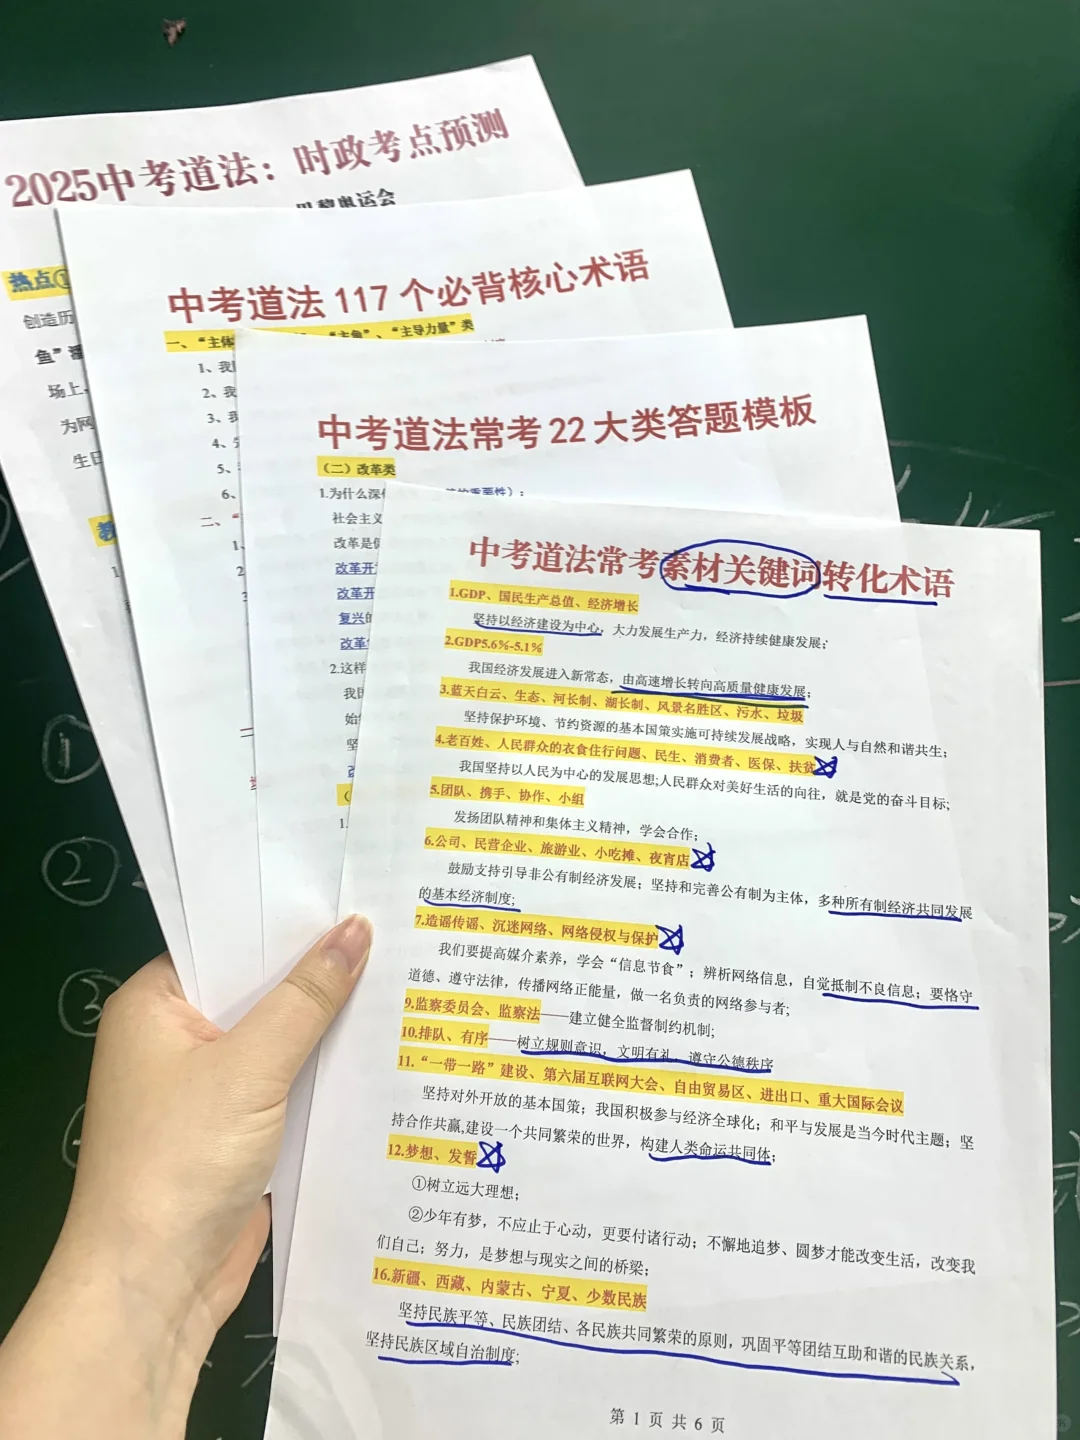 2025中考道法：时政考点预测
巴黎奥运会
热点①
创造历
鱼”潘
场上，
为网
生日
教
1
中考道法 117 个必背核心术语
一、“主体
“主角”、“主导力量”类
1、我
2、我
3、我
4、
5、
6、
二、“
1、
2
3
中考道法常考 22 大类答题模板
（二）改革类
1.为什么深
的重要性）：
社会主义
改革是
改革开
改革开
复兴的
改革
2.这样
我国
始终
坚
改
（
1.
中考道法常考素材关键词转化术语
1.GDP、国民生产总值、经济增长
坚持以经济建设为中心，大力发展生产力，经济持续健康发展；
2.GDP5.6%-5.1%
我国经济发展进入新常态，由高速增长转向高质量健康发展；
3.蓝天白云、生态、河长制、湖长制、风景名胜区、污水、垃圾
坚持保护环境、节约资源的基本国策实施可持续发展战略，实现人与自然和谐共生；
4.老百姓、人民群众的衣食住行问题、民生、消费者、医保、扶贫
我国坚持以人民为中心的发展思想；人民群众对美好生活的向往，就是党的奋斗目标；
5.团队、携手、协作、小组
发扬团队精神和集体主义精神，学会合作；
6.公司、民营企业、旅游业、小吃摊、夜宵店
鼓励支持引导非公有制经济发展；坚持和完善公有制为主体，多种所有制经济共同发展
的基本经济制度；
7.造谣传谣、沉迷网络、网络侵权与保护
我们要提高媒介素养，学会“信息节食”；辨析网络信息，自觉抵制不良信息；要恪守
道德、遵守法律，传播网络正能量，做一名负责的网络参与者；
9.监察委员会、监察法——建立健全监督制约机制；
10.排队、有序——树立规则意识，文明有礼，遵守公德秩序
11.“一带一路”建设、第六届互联网大会、自由贸易区、进出口、重大国际会议
坚持对外开放的基本国策；我国积极参与经济全球化；和平与发展是当今时代主题；坚
持合作共赢,建设一个共同繁荣的世界，构建人类命运共同体；
12.梦想、发誓
①树立远大理想；
②少年有梦，不应止于心动，更要付诸行动；不懈地追梦、圆梦才能改变生活，改变我
们自己；努力，是梦想与现实之间的桥梁；
16.新疆、西藏、内蒙古、宁夏、少数民族
坚持民族平等、民族团结、各民族共同繁荣的原则，巩固平等团结互助和谐的民族关系，
坚持民族区域自治制度；
第 1 页 共 6 页
①
②
③